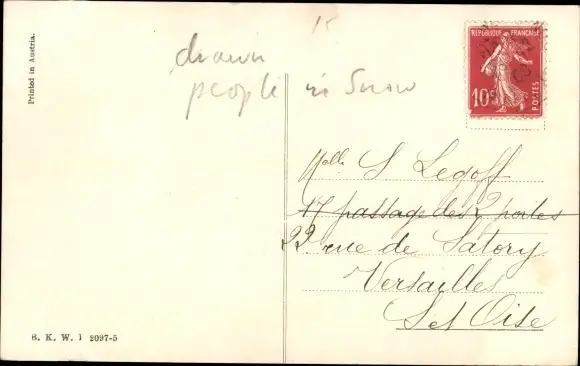 Printed in Austria.
15
drawn
people in Snow
REPUBLIQUE FRANÇAISE
10c
POSTES
Melle S Legoff
17 passage des 2 portes
22 rue de Satory
Versailles
S et Oise
B. K. W. I 2097-5